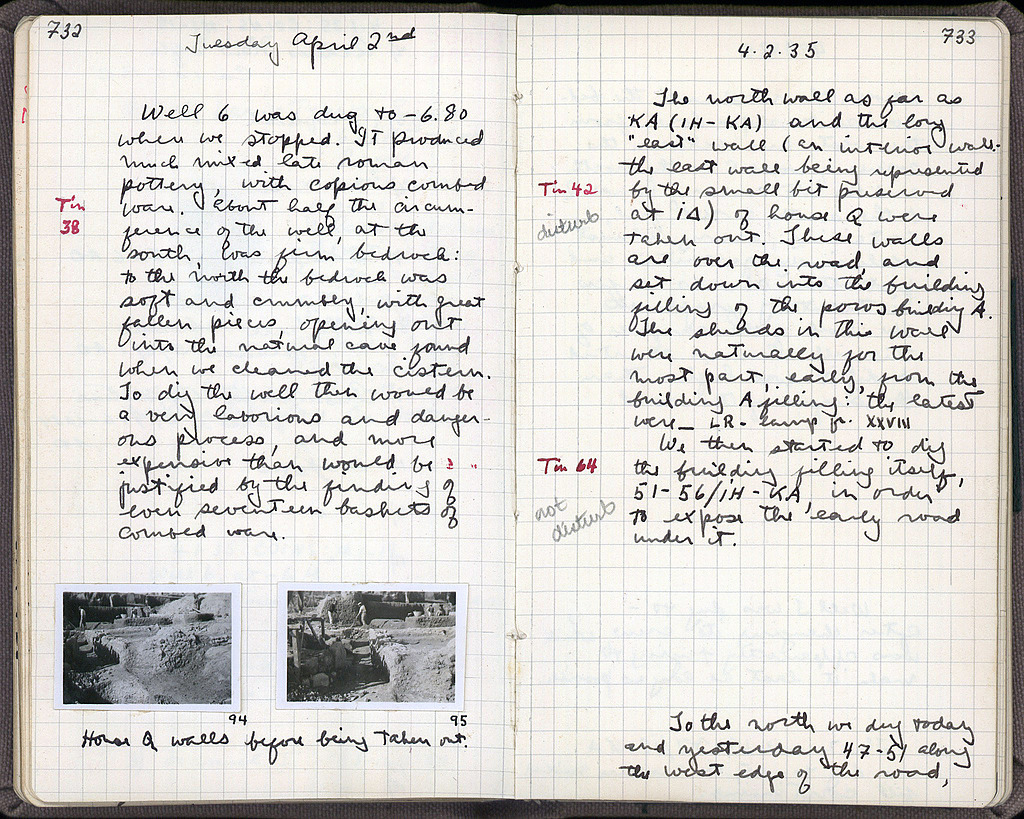 732
Tuesday April 2nd
Well 6 was dug to -6.80
when we stopped. It produced
much mixed late roman
pottery, with copious combed
Tin
38
ware. About half the circum-
ference of the well, at the
south, was firm bedrock:
to the north the bedrock was
soft and crumbly, with great
fallen pieces, opening out
into the natural cave found
when we cleaned the cistern.
To dig the well then would be
a very laborious and danger-
ous process, and more
expensive than would be
justified by the finding of
even seventeen baskets of
combed ware.
94
95
House Q walls before being taken out.
733
4.2.35
The north wall as far as
KA (IH-KA) and the long
"east" wall (an interior wall-
the east wall being represented
Tin 42
by the small bit preserved
disturb
at ΙΔ) of house Q were
taken out. These walls
are over the road, and
set down into the building
filling of the poros building A.
The sherds in this wall
were naturally for the
most part, early, from the
building A filling: the latest
were LR. lamp fr. XXVIII
We then started to dig
Tin 64
the building filling itself,
51-56/IH-KA, in order
not
disturb
to expose the early road
under it.
To the north we dug today
and yesterday 47-51 along
the west edge of the road,